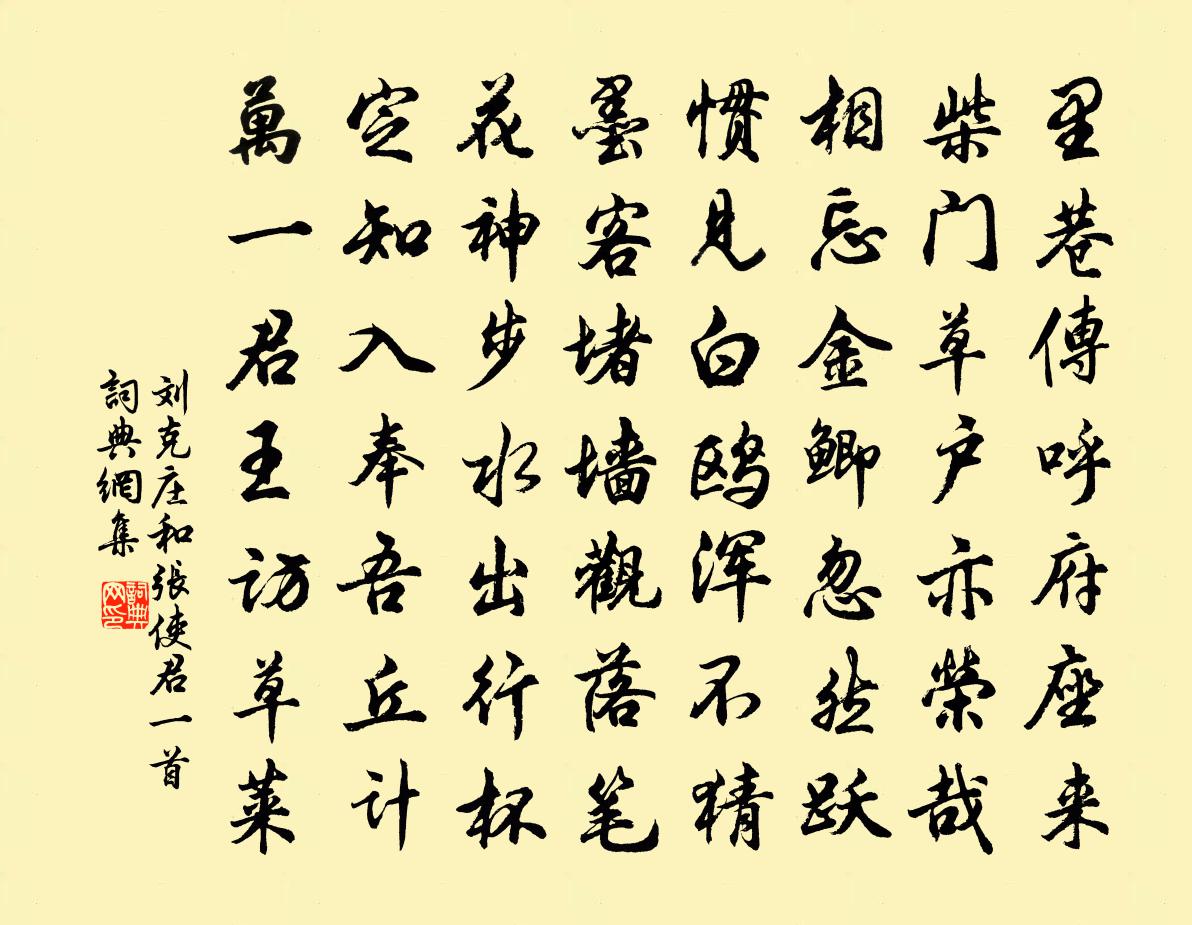 里巷傳呼府座来
柴门草户亦榮哉
相忘金鲫忽然跃
惯见白鸥浑不猜
墨客堵墙觀落笔
花神步水出行杯
定知入奉吾丘计
萬一君王访草莱
刘克庄和張使君一首
詞典網集
詞典网印